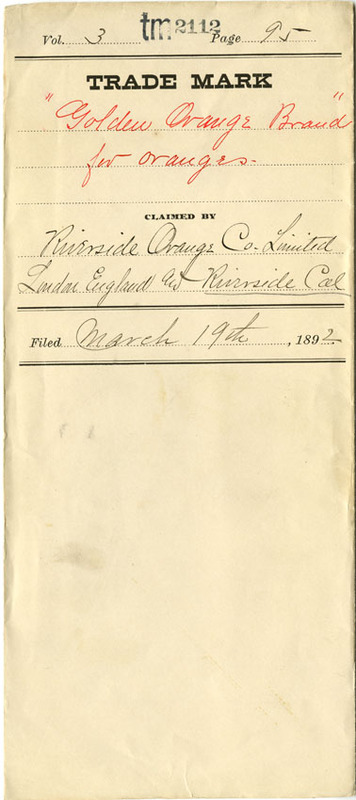 Vol. 3 tm 2112 Page 95
TRADE MARK
"Golden Orange Brand"
for oranges.
CLAIMED BY
Riverside Orange Co. Limited
London England and Riverside Cal
Filed March 19th, 1892